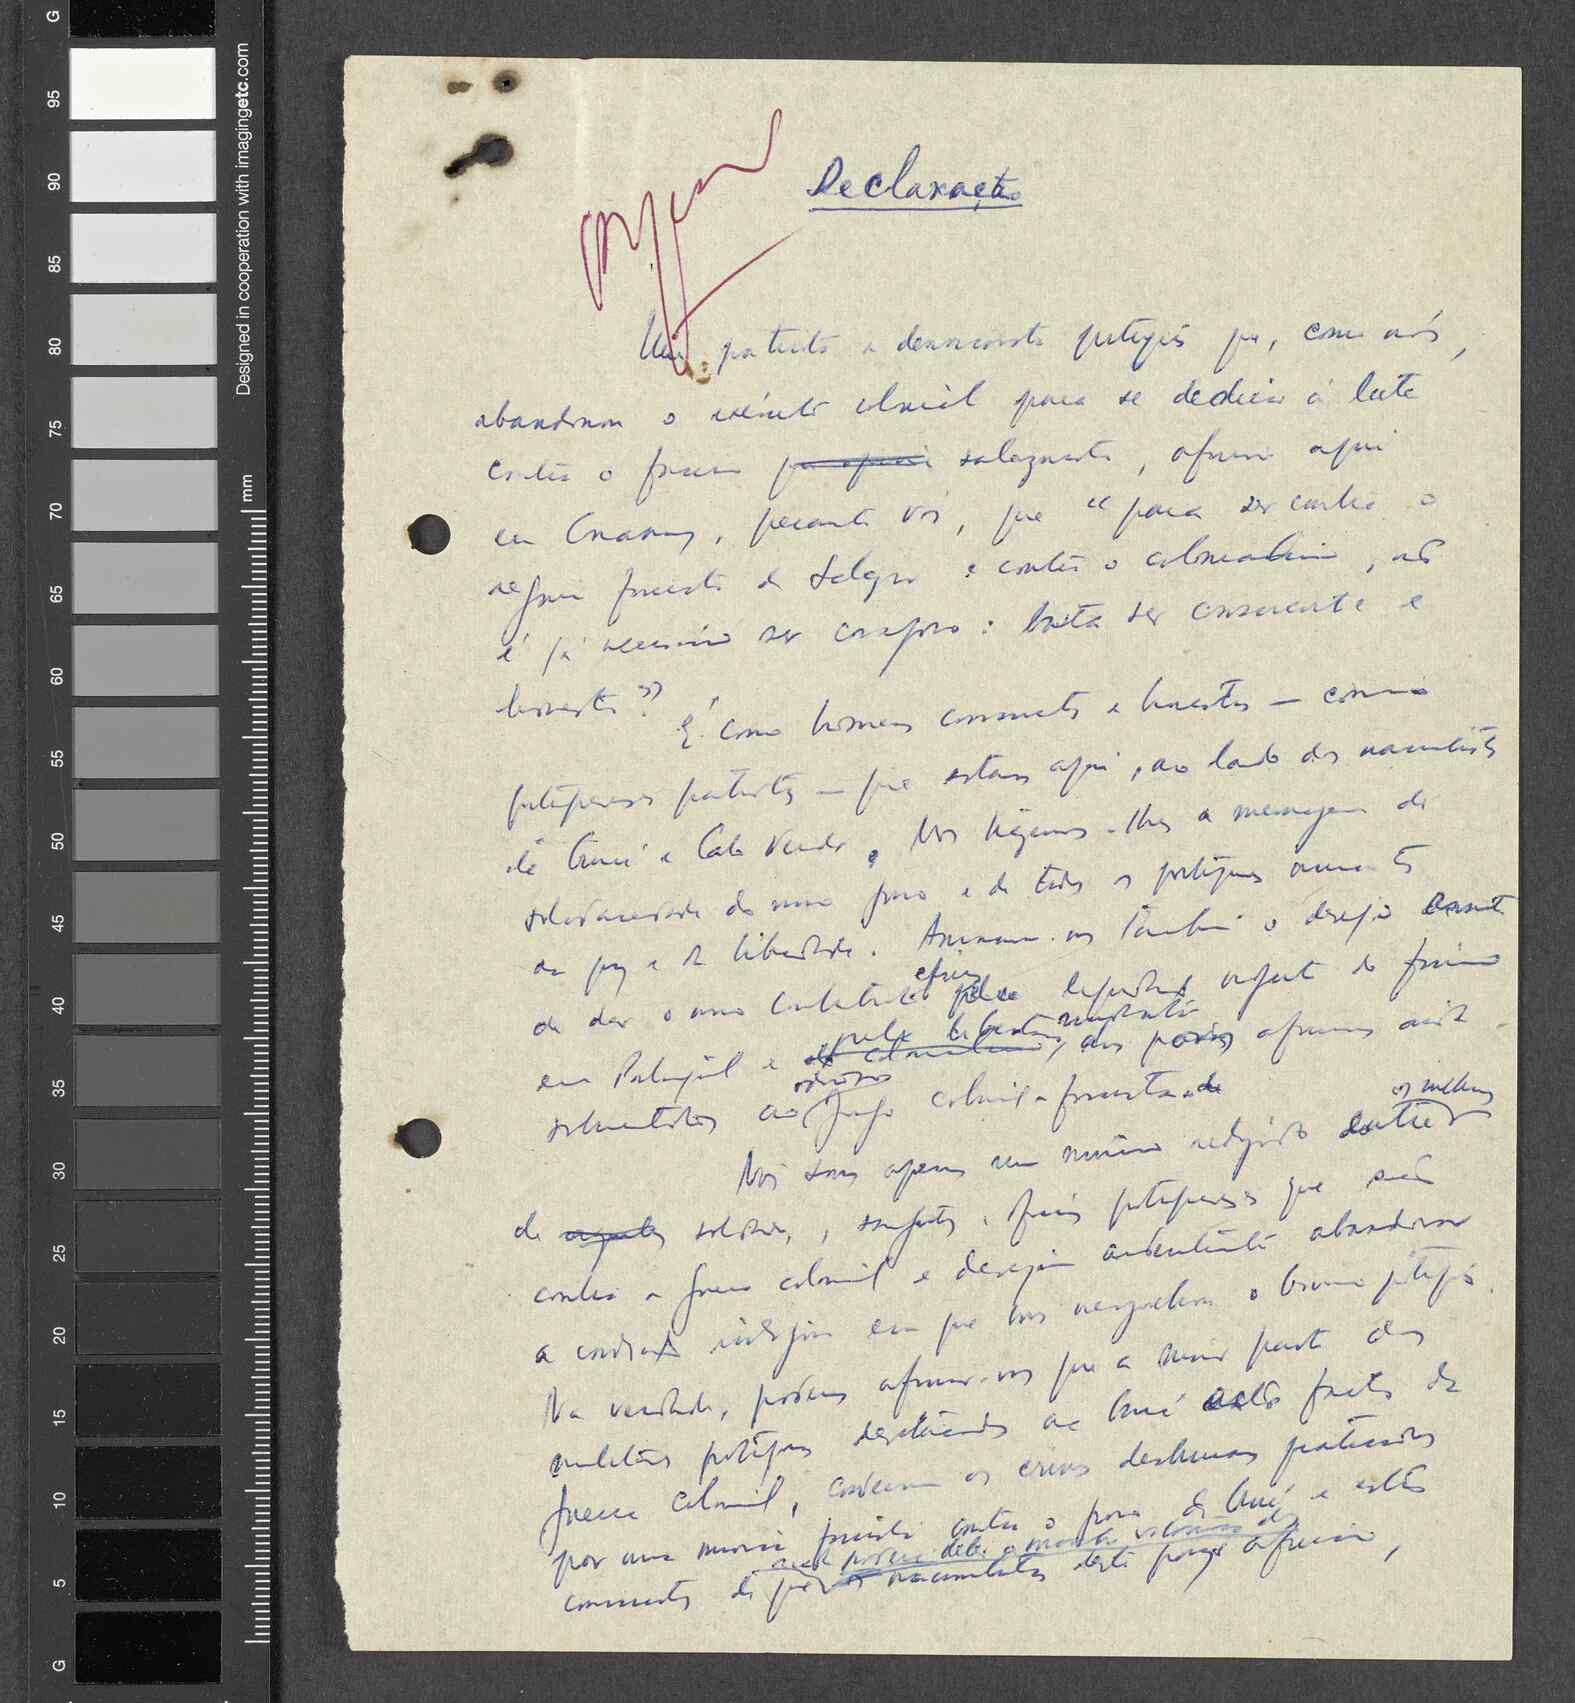 Declaração
Um patriota e democrata português que, como nós,
abandonou o exército colonial para se dedicar à luta
contra o fascismo salazarista, afirmou aqui
em Conakry, perante vós, que "para ser contra o
regime fascista de Salazar e contra o colonialismo, não
é já necessário ser corajoso: basta ser consciente e
honesto".
É como homens conscientes e honestos — como
portugueses patriotas — que estamos aqui, ao lado dos nacionalistas
da Guiné e Cabo Verde. Nós trazemos-lhes a mensagem de
solidariedade do nosso povo e de todos os portugueses amantes
da paz e da liberdade. Anima-nos também o desejo
de dar o nosso contributo eficaz pela liquidação urgente do fascismo
em Portugal e pela libertação dos povos africanos ainda
submetidos ao odioso jugo colonial-fascista
Nós somos apenas um número reduzido entre os milhares
de soldados, sargentos e oficiais portugueses que são
contra a guerra colonial e desejam ardentemente abandonar
a condição indigna em que nos mergulhou o Governo português.
Na verdade, podemos afirmar-vos que a maior parte dos
militares portugueses destacados na Guiné estão fartos da
guerra colonial, condenam os crimes desumanos praticados
por uma minoria fascista contra o povo da Guiné e estão
conscientes de que nada poderá deter a marcha vitoriosa dos
nacionalistas deste povo africano,